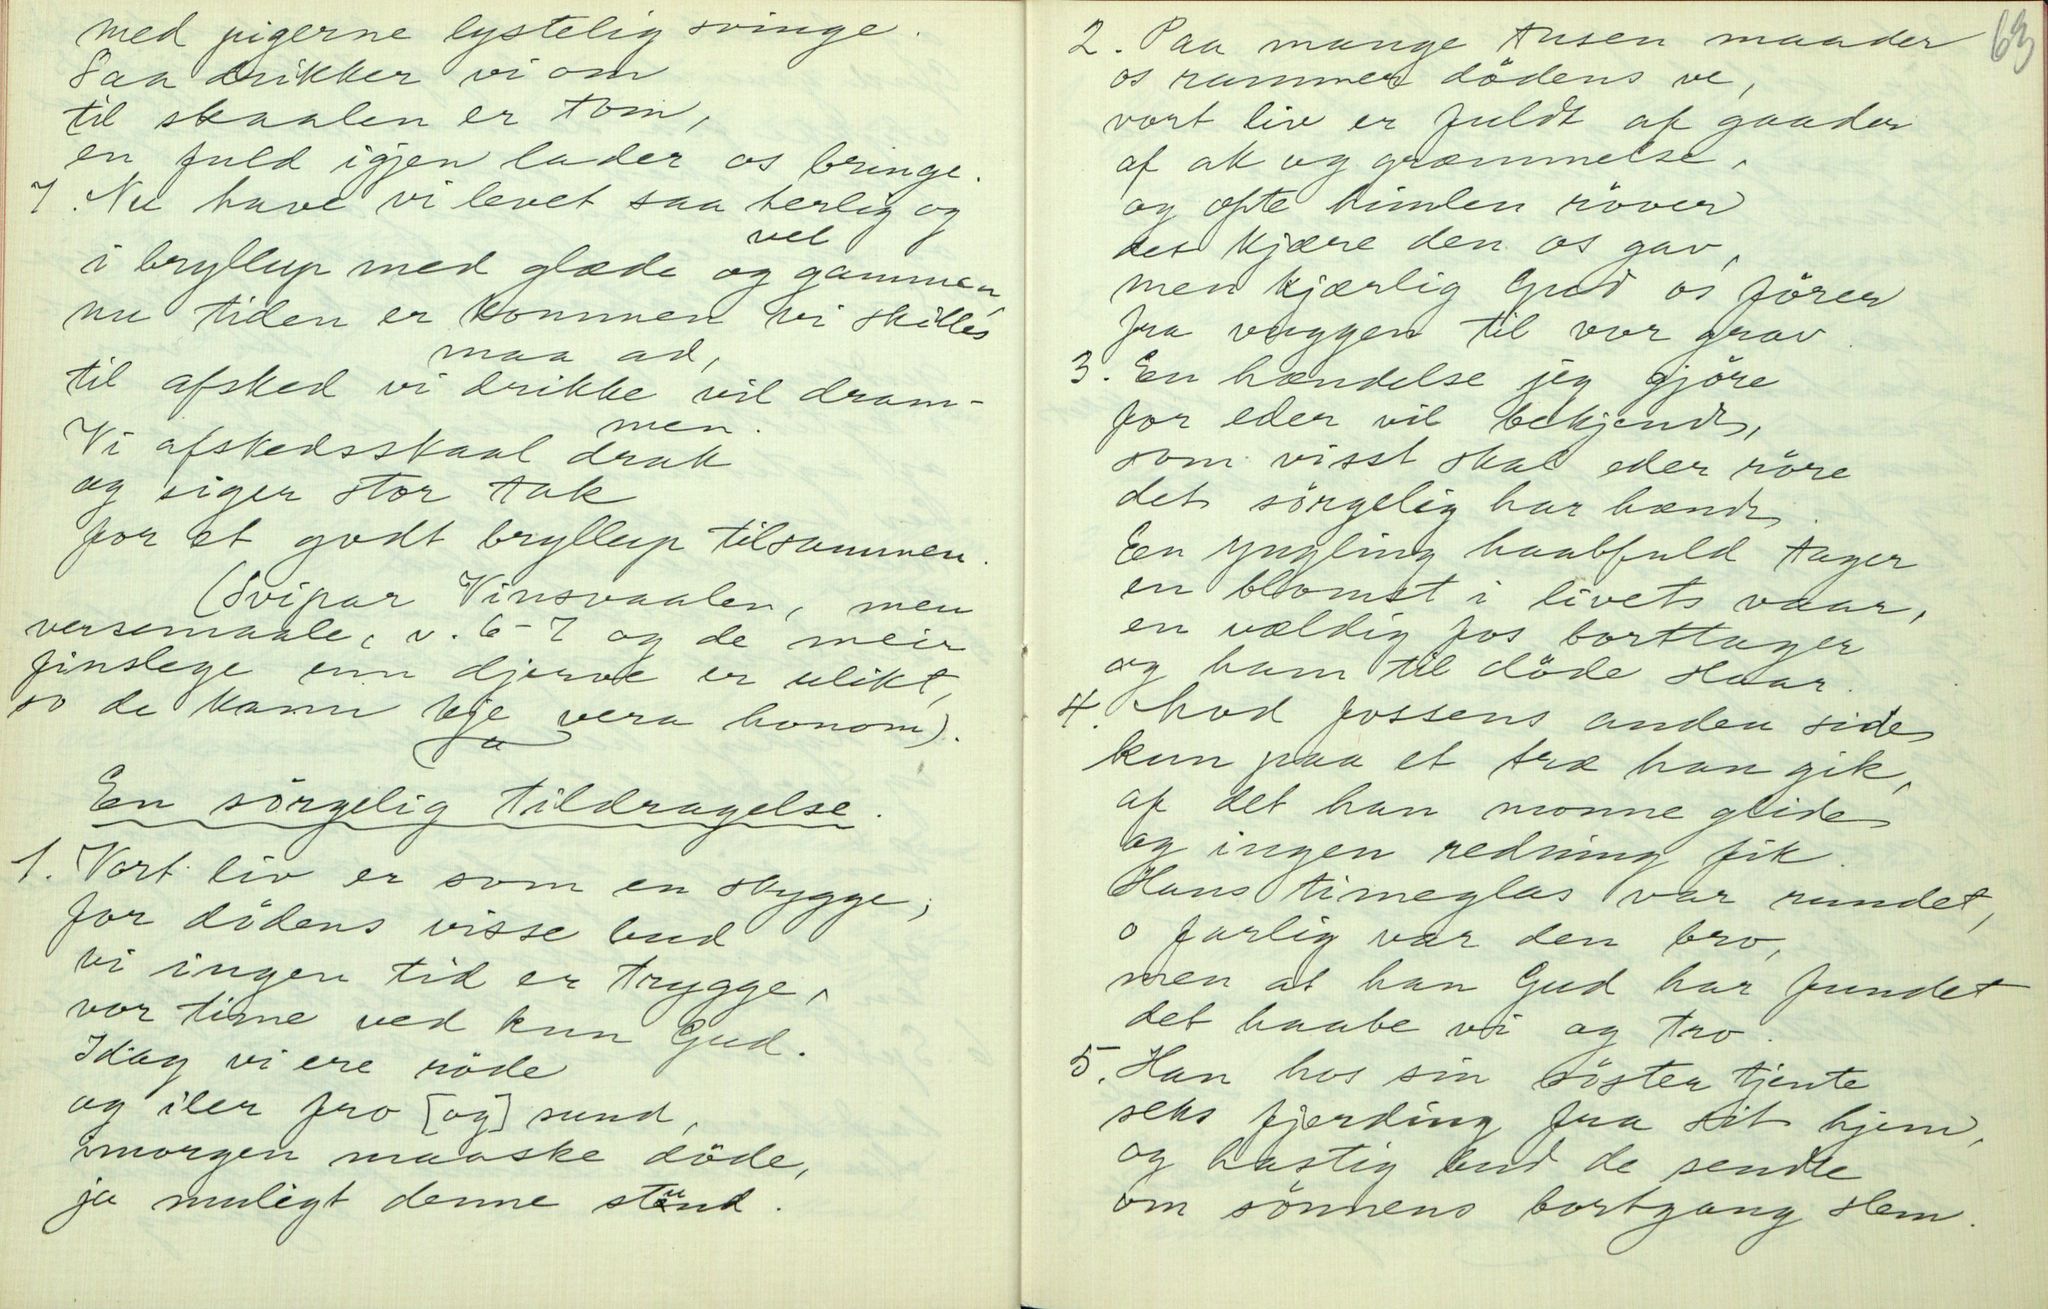 med pigerne lystelig svinge.
Saa drikker vi om
til skaalen er tom,
en fuld igjen lader os bringe.
7. Nu have vi levet saa herlig og
vel
i bryllup med glæde og gammen,
nu tiden er kommen vi skilles
maa ad,
til afsked vi drikke vil dram-
men.
Vi afskedsskaal drak
og siger stor tak
for et godt bryllup tilsammen.
(Svipar Vinsvaalen, men
versemaale, v. 6-7 og de meir
finslege enn djerve er ulikt,
so de kann kje vera honom).
a
En sörgelig tildragelse.
1. Vort liv er som en skygge,
for dödens visse bud
vi ingen tid er trygge,
vor time ved kun Gud.
Idag vi ere röde
og iler fro [og] sund,
imorgen maaske döde,
ja muligt denne stund.
63
2. Paa mange tusen maader
os rammer dödens ve,
vort liv er fuldt af gaader
af ak og græmmelse,
og ofte himlen röver
det kjære den os gav,
men kjærlig Gud os förer
fra vuggen til vor grav.
3. En hændelse jeg gjöre
for eder vil bekjendt,
som visst skal eder röre
det sörgelig har hændt.
En yngling haabfuld tager
en blomst i livets vaar,
en vældig fos borttager
og ham til döde slaar.
4. Mod fossens anden side
kun paa et træ han gik,
af det han monne glide
og ingen redning fik.
Hans timeglas var rundet,
o farlig var den bro,
men at han Gud har fundet
det haabe vi og tro.
5. Han hos sin söster tjente
seks fjerding fra sit hjem,
og hastig bud de sendte
om sönnens bortgang slem.